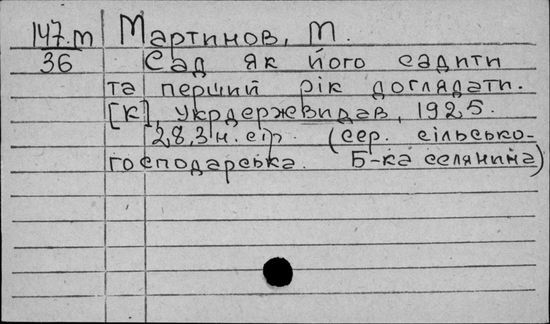 147.m Мартинов, М.
36 Сад як його садити
та перший рік доглядати.
[К], Укрдержвидав, 1925.
28,3н. стр. (сер. сільсько-
господарська. Б-ка селянина)